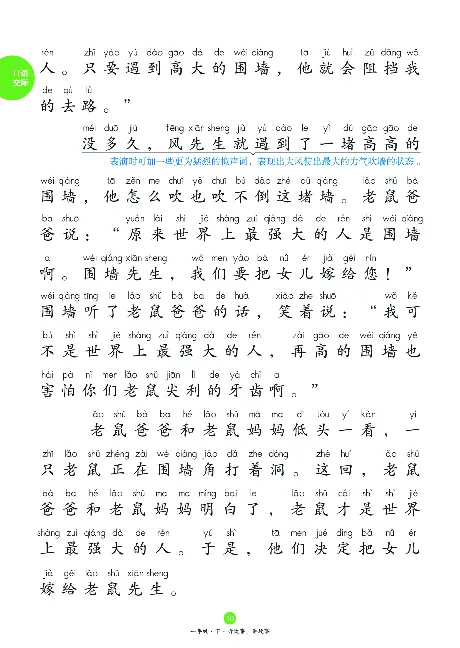 口语
交际
rén zhǐ yào yù dào gāo dà de wéi qiáng tā jiù huì zǔ dǎng wǒ
人。只要遇到高大的围墙，他就会阻挡我
de qù lù
的去路。”
méi duō jiǔ fēng xiān sheng jiù yù dào le yì dǔ gāo gāo de
没多久，风先生就遇到了一堵高高的
表演时可加一些更为猛烈的拟声词，表现出大风使出最大的力气吹墙的状态。
wéi qiáng tā zěn me chuī yě chuī bù dǎo zhè dǔ qiáng lǎo shǔ bà
围墙，他怎么吹也吹不倒这堵墙。老鼠爸
ba shuō yuán lái shì jiè shàng zuì qiáng dà de rén shì wéi qiáng
爸说：“原来世界上最强大的人是围墙
a wéi qiáng xiān sheng wǒ men yào bǎ nǚ ér jià gěi nín
啊。围墙先生，我们要把女儿嫁给您！”
wéi qiáng tīng le lǎo shǔ bà ba de huà xiào zhe shuō wǒ kě
围墙听了老鼠爸爸的话，笑着说：“我可
bú shì shì jiè shàng zuì qiáng dà de rén zài gāo de wéi qiáng yě
不是世界上最强大的人，再高的围墙也
hài pà nǐ men lǎo shǔ jiān lì de yá chǐ a
害怕你们老鼠尖利的牙齿啊。”
lǎo shǔ bà ba hé lǎo shǔ mā ma dī tóu yí kàn yì
老鼠爸爸和老鼠妈妈低头一看，一
zhī lǎo shǔ zhèng zài wéi qiáng jiǎo dǎ zhe dòng zhè huí lǎo shǔ
只老鼠正在围墙角打着洞。这回，老鼠
bà ba hé lǎo shǔ mā ma míng bai le lǎo shǔ cái shì shì jiè
爸爸和老鼠妈妈明白了，老鼠才是世界
shàng zuì qiáng dà de rén yú shì tā men jué dìng bǎ nǚ ér
上最强大的人。于是，他们决定把女儿
jià gěi lǎo shǔ xiān sheng
嫁给老鼠先生。